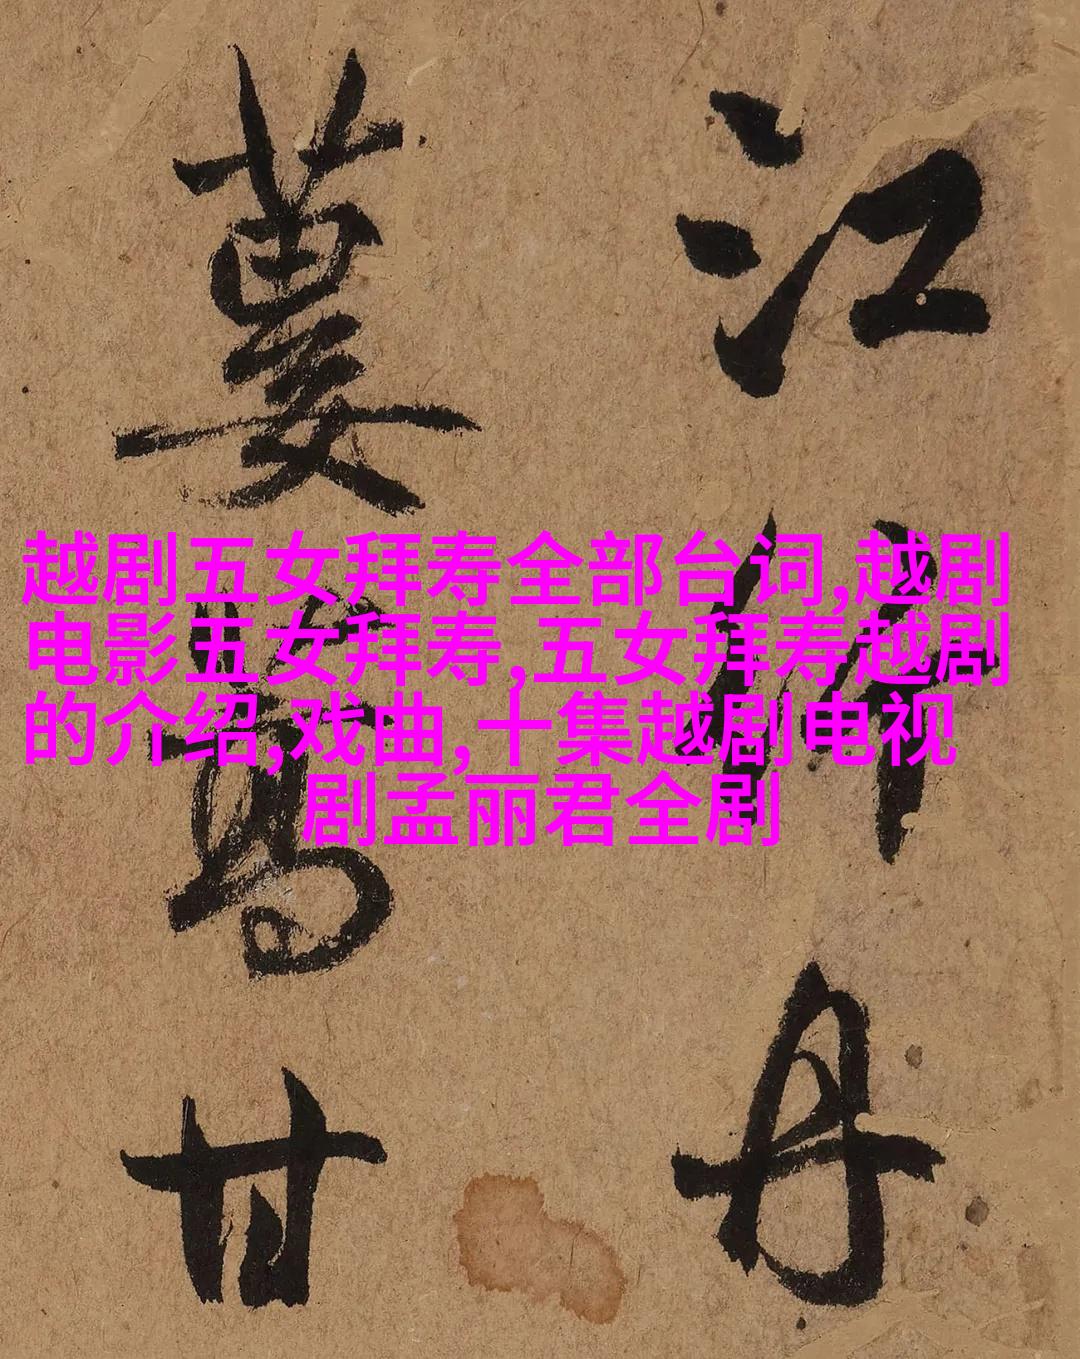 越剧五女拜寿全部台词,越剧
电影五女拜寿,五女拜寿越剧
的介绍,戏曲,十集越剧电视
剧孟丽君全剧
江丹
蔞蒿甘